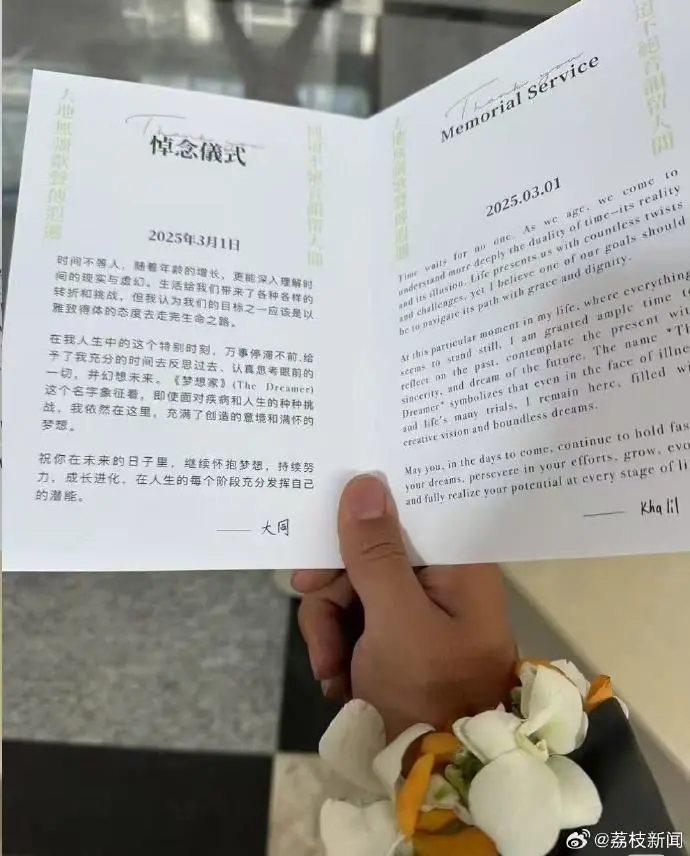 Thank you
悼念儀式
2025年3月1日
时间不等人，随着年龄的增长，更能深入理解时
间的现实与虚幻。生活给我们带来了各种各样的
转折和挑战，但我认为我们的目标之一应该是以
雅致得体的态度去走完生命之路。
在我人生中的这个特别时刻，万事停滞不前，给
予了我充分的时间去反思过去、认真思考眼前的
一切，并幻想未来。《梦想家》(The Dreamer)
这个名字象征着，即使面对疾病和人生的种种挑
战，我依然在这里，充满了创造的意境和满怀的
梦想。
祝你在未来的日子里，继续怀抱梦想，持续努
力，成长进化，在人生的每个阶段充分发挥自己
的潜能。
—— 大同
Thank you
Memorial Service
2025.03.01
Time waits for no one. As we age, we come to
understand more deeply the duality of time—its reality
and its illusion. Life presents us with countless twists
and challenges, yet I believe one of our goals should
be to navigate its path with grace and dignity.
At this particular moment in my life, where everything
seems to stand still, I am granted ample time to
reflect on the past, contemplate the present with
sincerity, and dream of the future. The name "The
Dreamer" symbolizes that even in the face of illness
and life's many trials, I remain here, filled with
creative vision and boundless dreams.
May you, in the days to come, continue to hold fast
your dreams, persevere in your efforts, grow, evo
and fully realize your potential at every stage of li
—— Khalil
@荔枝新闻